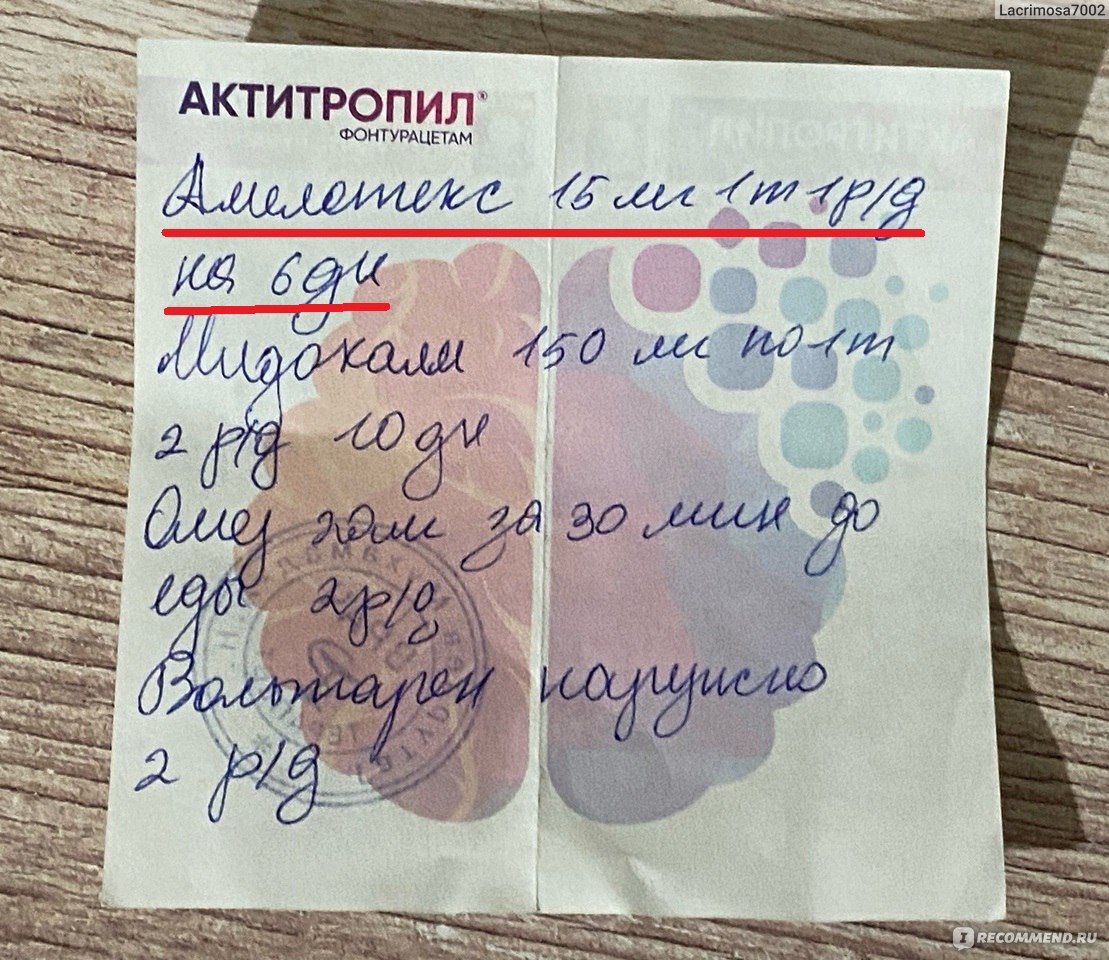 Lacrimosa7002
АКТИТРОПИЛ®
ФОНТУРАЦЕТАМ
Амелотекс 15 мг 1т 1р/д
на 6 дн
Мидокалм 150 мг по 1т
2 р/д 10 дн
Омез 20мг за 30 мин до
еды 2р/д
Вольтарен наружно
2 р/д
IRECOMMEND.RU